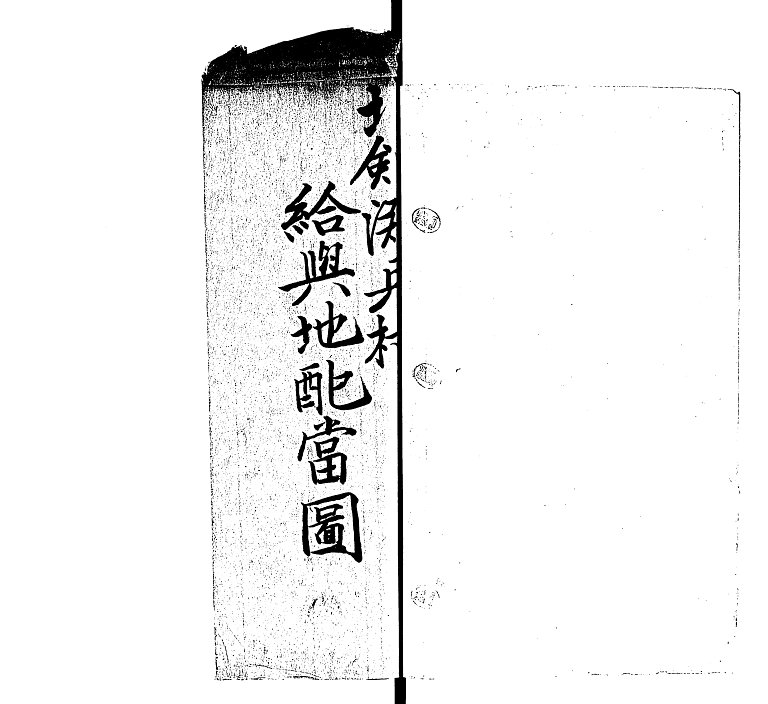 北剣渕兵村
給與地配當圖